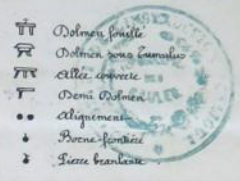 Dolmen fouillé
Dolmen sous Tumulus
Allée couverte
Demi Dolmen
Alignement
Borne-frontière
Pierre branlante